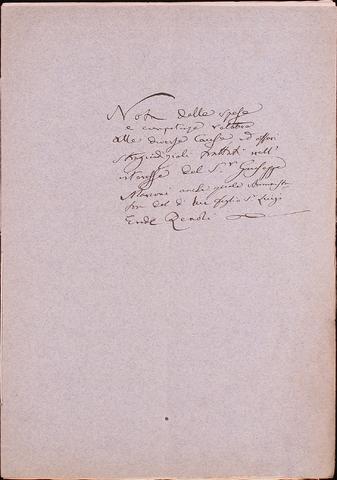 Nota delle spese
e competenze relative
alle diverse Cause ed affari
stragiudiziali trattati nell'
interesse del S.r Giuseppe
Marconi anche quale
del di lui figlio S. Luigi
Erede